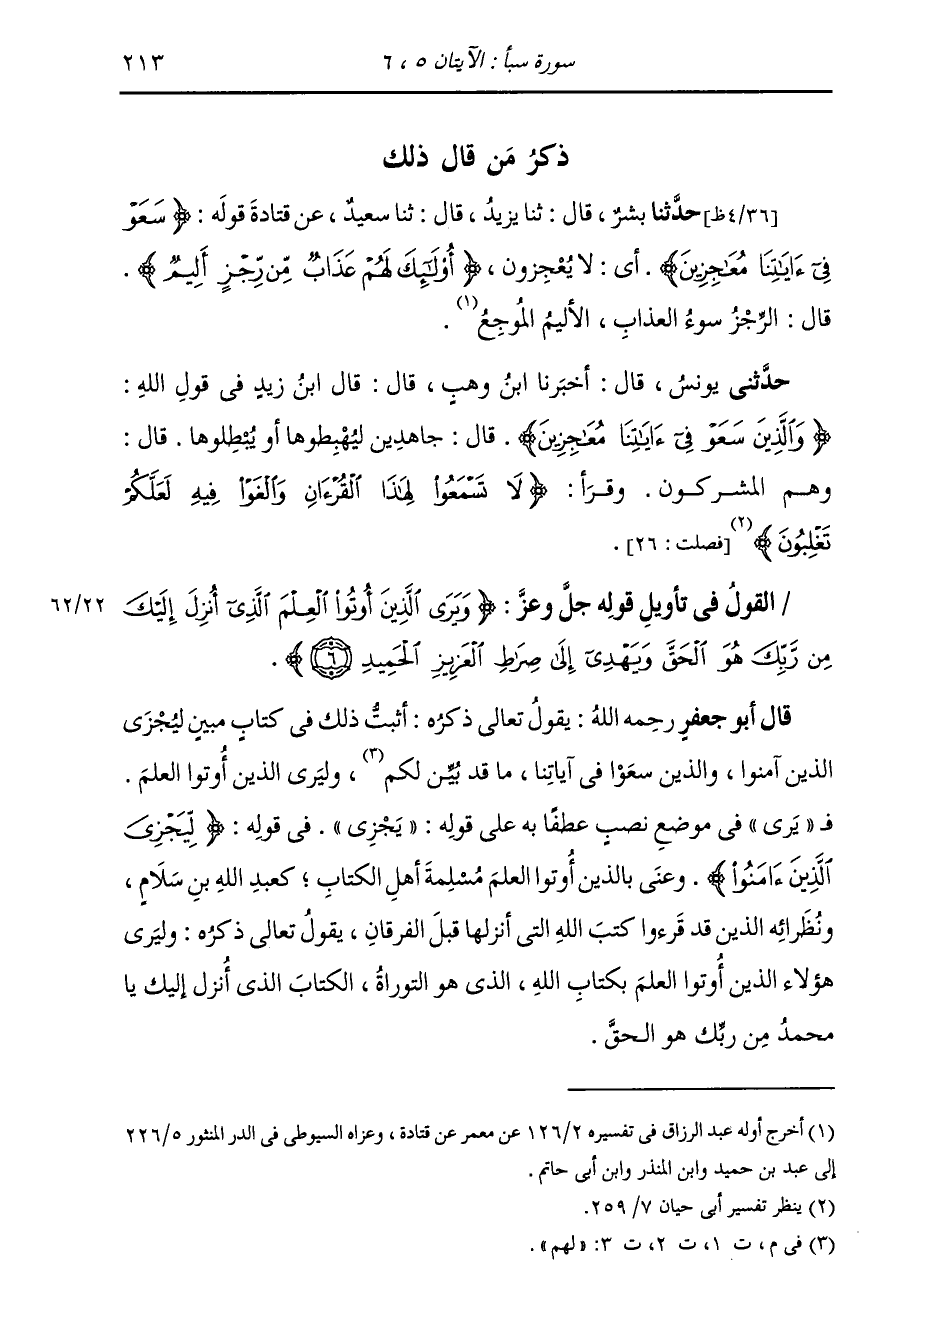 سورة سبأ : الآيتان ٥ ، ٦ ٢١٣
ذكرُ مَن قال ذلك
[٤/٣٦ظ] حدَّثنا بشرٌ ، قال : ثنا يزيدُ ، قال : ثنا سعيدٌ ، عن قتادةَ قولَه : ﴿ سَعَوْ
فِىٓ ءَايَٰتِنَا مُعَٰجِزِينَ﴾ . أى : لا يُعْجِزون ، ﴿ أُوْلَٰٓئِكَ لَهُمْ عَذَابٌ مِّن رِّجْزٍ أَلِيمٌ ﴾ .
قال : الرِّجْزُ سوءُ العذابِ ، الأليمُ المُوجِعُ(١) .
حدَّثنى يونسُ ، قال : أخبَرنا ابنُ وهبٍ ، قال : قال ابنُ زيدٍ فى قولِ اللهِ :
﴿ وَٱلَّذِينَ سَعَوْ فِىٓ ءَايَٰتِنَا مُعَٰجِزِينَ﴾ . قال : جاهدِين ليُهْبِطوها أو يُبْطِلوها . قال :
وهـم المشـركـون . وقـرَأ : ﴿ لَا تَسْمَعُوا۟ لِهَٰذَا ٱلْقُرْءَانِ وَٱلْغَوْا۟ فِيهِ لَعَلَّكُمْ
تَغْلِبُونَ ﴾(٢) [فصلت : ٢٦] .
/ القولُ فى تأويلِ قولِه جلَّ وعزَّ : ﴿ وَيَرَى ٱلَّذِينَ أُوتُوا۟ ٱلْعِلْمَ ٱلَّذِىٓ أُنزِلَ إِلَيْكَ ٦٢/٢٢
مِن رَّبِّكَ هُوَ ٱلْحَقَّ وَيَهْدِىٓ إِلَىٰ صِرَٰطِ ٱلْعَزِيزِ ٱلْحَمِيدِ ٦ ﴾ .
قال أبو جعفرٍ رحِمه اللهُ : يقولُ تعالى ذكرُه : أثبتُّ ذلك فى كتابٍ مبينٍ ليُجْزَى
الذين آمنوا ، والذين سعَوْا فى آياتِنا ، ما قد بُيِّن لكم(٣) ، وليَرى الذين أُوتوا العلمَ .
فـ « يَرى » فى موضعِ نصبٍ عطفًا به على قولِه : « يَجْزِى » . فى قولِه : ﴿ لِّيَجْزِىَ
ٱلَّذِينَ ءَامَنُوا۟ ﴾ . وعنَى بالذين أُوتوا العلمَ مُسْلِمةَ أهلِ الكتابِ ؛ كعبدِ اللهِ بنِ سَلَامٍ ،
ونُظَرائِه الذين قد قَرءوا كتبَ اللهِ التى أنزلها قبلَ الفرقانِ ، يقولُ تعالى ذكرُه : وليَرى
هؤلاء الذين أُوتوا العلمَ بكتابِ اللهِ ، الذى هو التوراةُ ، الكتابَ الذى أُنزل إليك يا
محمدُ مِن ربِّك هو الـحقَّ .
(١) أخرج أوله عبد الرزاق فى تفسيره ١٢٦/٢ عن معمر عن قتادة ، وعزاه السيوطى فى الدر المنثور ٢٢٦/٥
إلى عبد بن حميد وابن المنذر وابن أبى حاتم .
(٢) ينظر تفسير أبى حيان ٧/ ٢٥٩.
(٣) فى م ، ت ١، ت ٢، ت ٣: «لهم» .